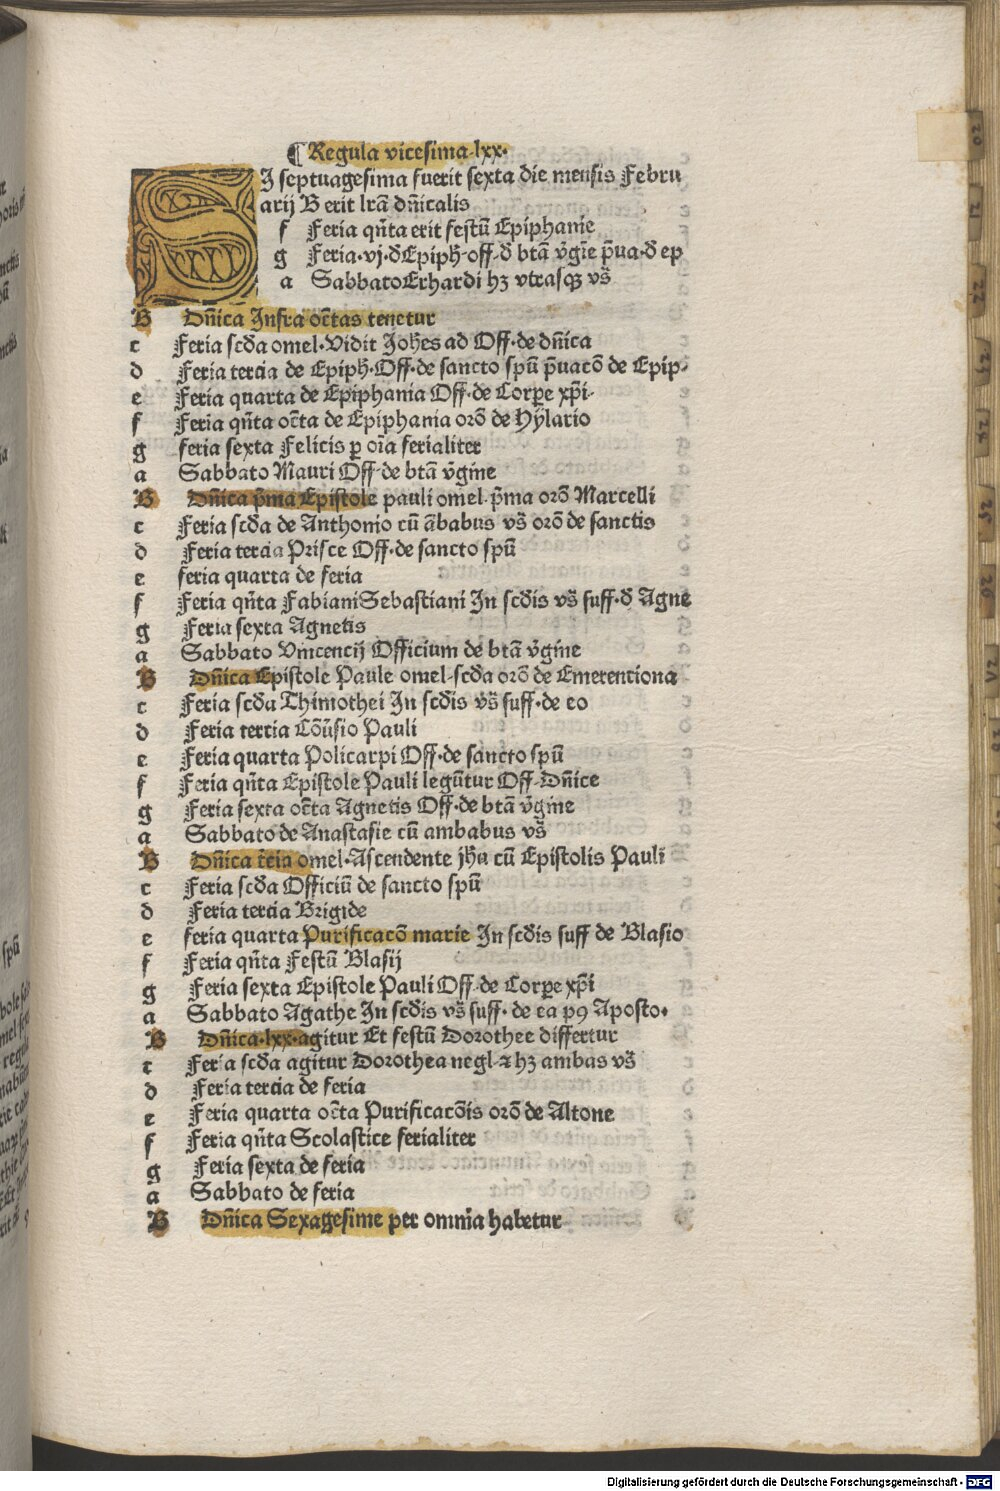 ¶ Regula vicesima·lxx·
SI septuagesima fuerit sexta die mensis Febru
arij B erit lrã dn̄icalis
f Feria qn̄ta erit festū Epiphanie
g Feria·vj·đEpiph·off·đ btã v̄gīe p̄ua·đ ep
a SabbatoErhardi hꝫ vtrasqꝫ vs̄
B Dn̄ica Infra octas tenetur
c Feria scđa omel·Vidit Johes ad Off·de dn̄ica
d Feria tercia de Epiph·Off·de sancto spū p̄uacō de Epip·
e Feria quarta de Epiphania Off·de Corpe xp̄i·
f Feria qn̄ta octa de Epiphania orō de Hylario
g feria sexta Felicis ꝑ oīa ferialiter
a Sabbato Mauri Off·de btã v̄gine
B Dn̄ica p̄ma Epistole pauli omel·p̄ma orō Marcelli
c Feria scđa de Anthonio cū ābabus vs̄ orō de sanctis
d Feria tercia Prisce Off·de sancto spū
e feria quarta de feria
f Feria qn̄ta FabianiSebastiani In scđis vs̄ suff·đ Agne
g Feria sexta Agnetis
a Sabbato Vincencij Officium de btã v̄gine
B Dn̄ica Epistole Paule omel·scđa orō de Emerenciona
c Feria scđa Thimothei In scđis vs̄ suff·de eo
d Feria tercia Cōūsio Pauli
e Feria quarta Policarpi Off·de sancto spū
f Feria qn̄ta Epistole Pauli legūtur Off·Dn̄ice
g Feria sexta octa Agnetis Off·de btã v̄gine
a Sabbato de Anastasie cū ambabus vs̄
B Dn̄ica t̄cia omel·Ascendente jhu cū Epistolis Pauli
c Feria scđa Officiū de sancto spū
d Feria tercia Brigide
e feria quarta Purificacō marie In scđis suff de Blasio
f Feria qn̄ta Festū Blasij
g Feria sexta Epistole Pauli Off·de Corpe xp̄i
a Sabbato Agathe In scđis vs̄ suff·de ea p9 Aposto·
B Dn̄ica·lxx·agitur Et festū Dorothee differtur
c Feria scđa agitur Dorothea negl·⁊ hꝫ ambas vs̄
d Feria tercia de feria
e Feria quarta octa Purificacōis orō de Altone
f Feria qn̄ta Scolastice ferialiter
g Feria sexta de feria
a Sabbato de feria
B Dn̄ica Sexagesime per omnia habetur
Digitalisierung gefördert durch die Deutsche Forschungsgemeinschaft · DFG